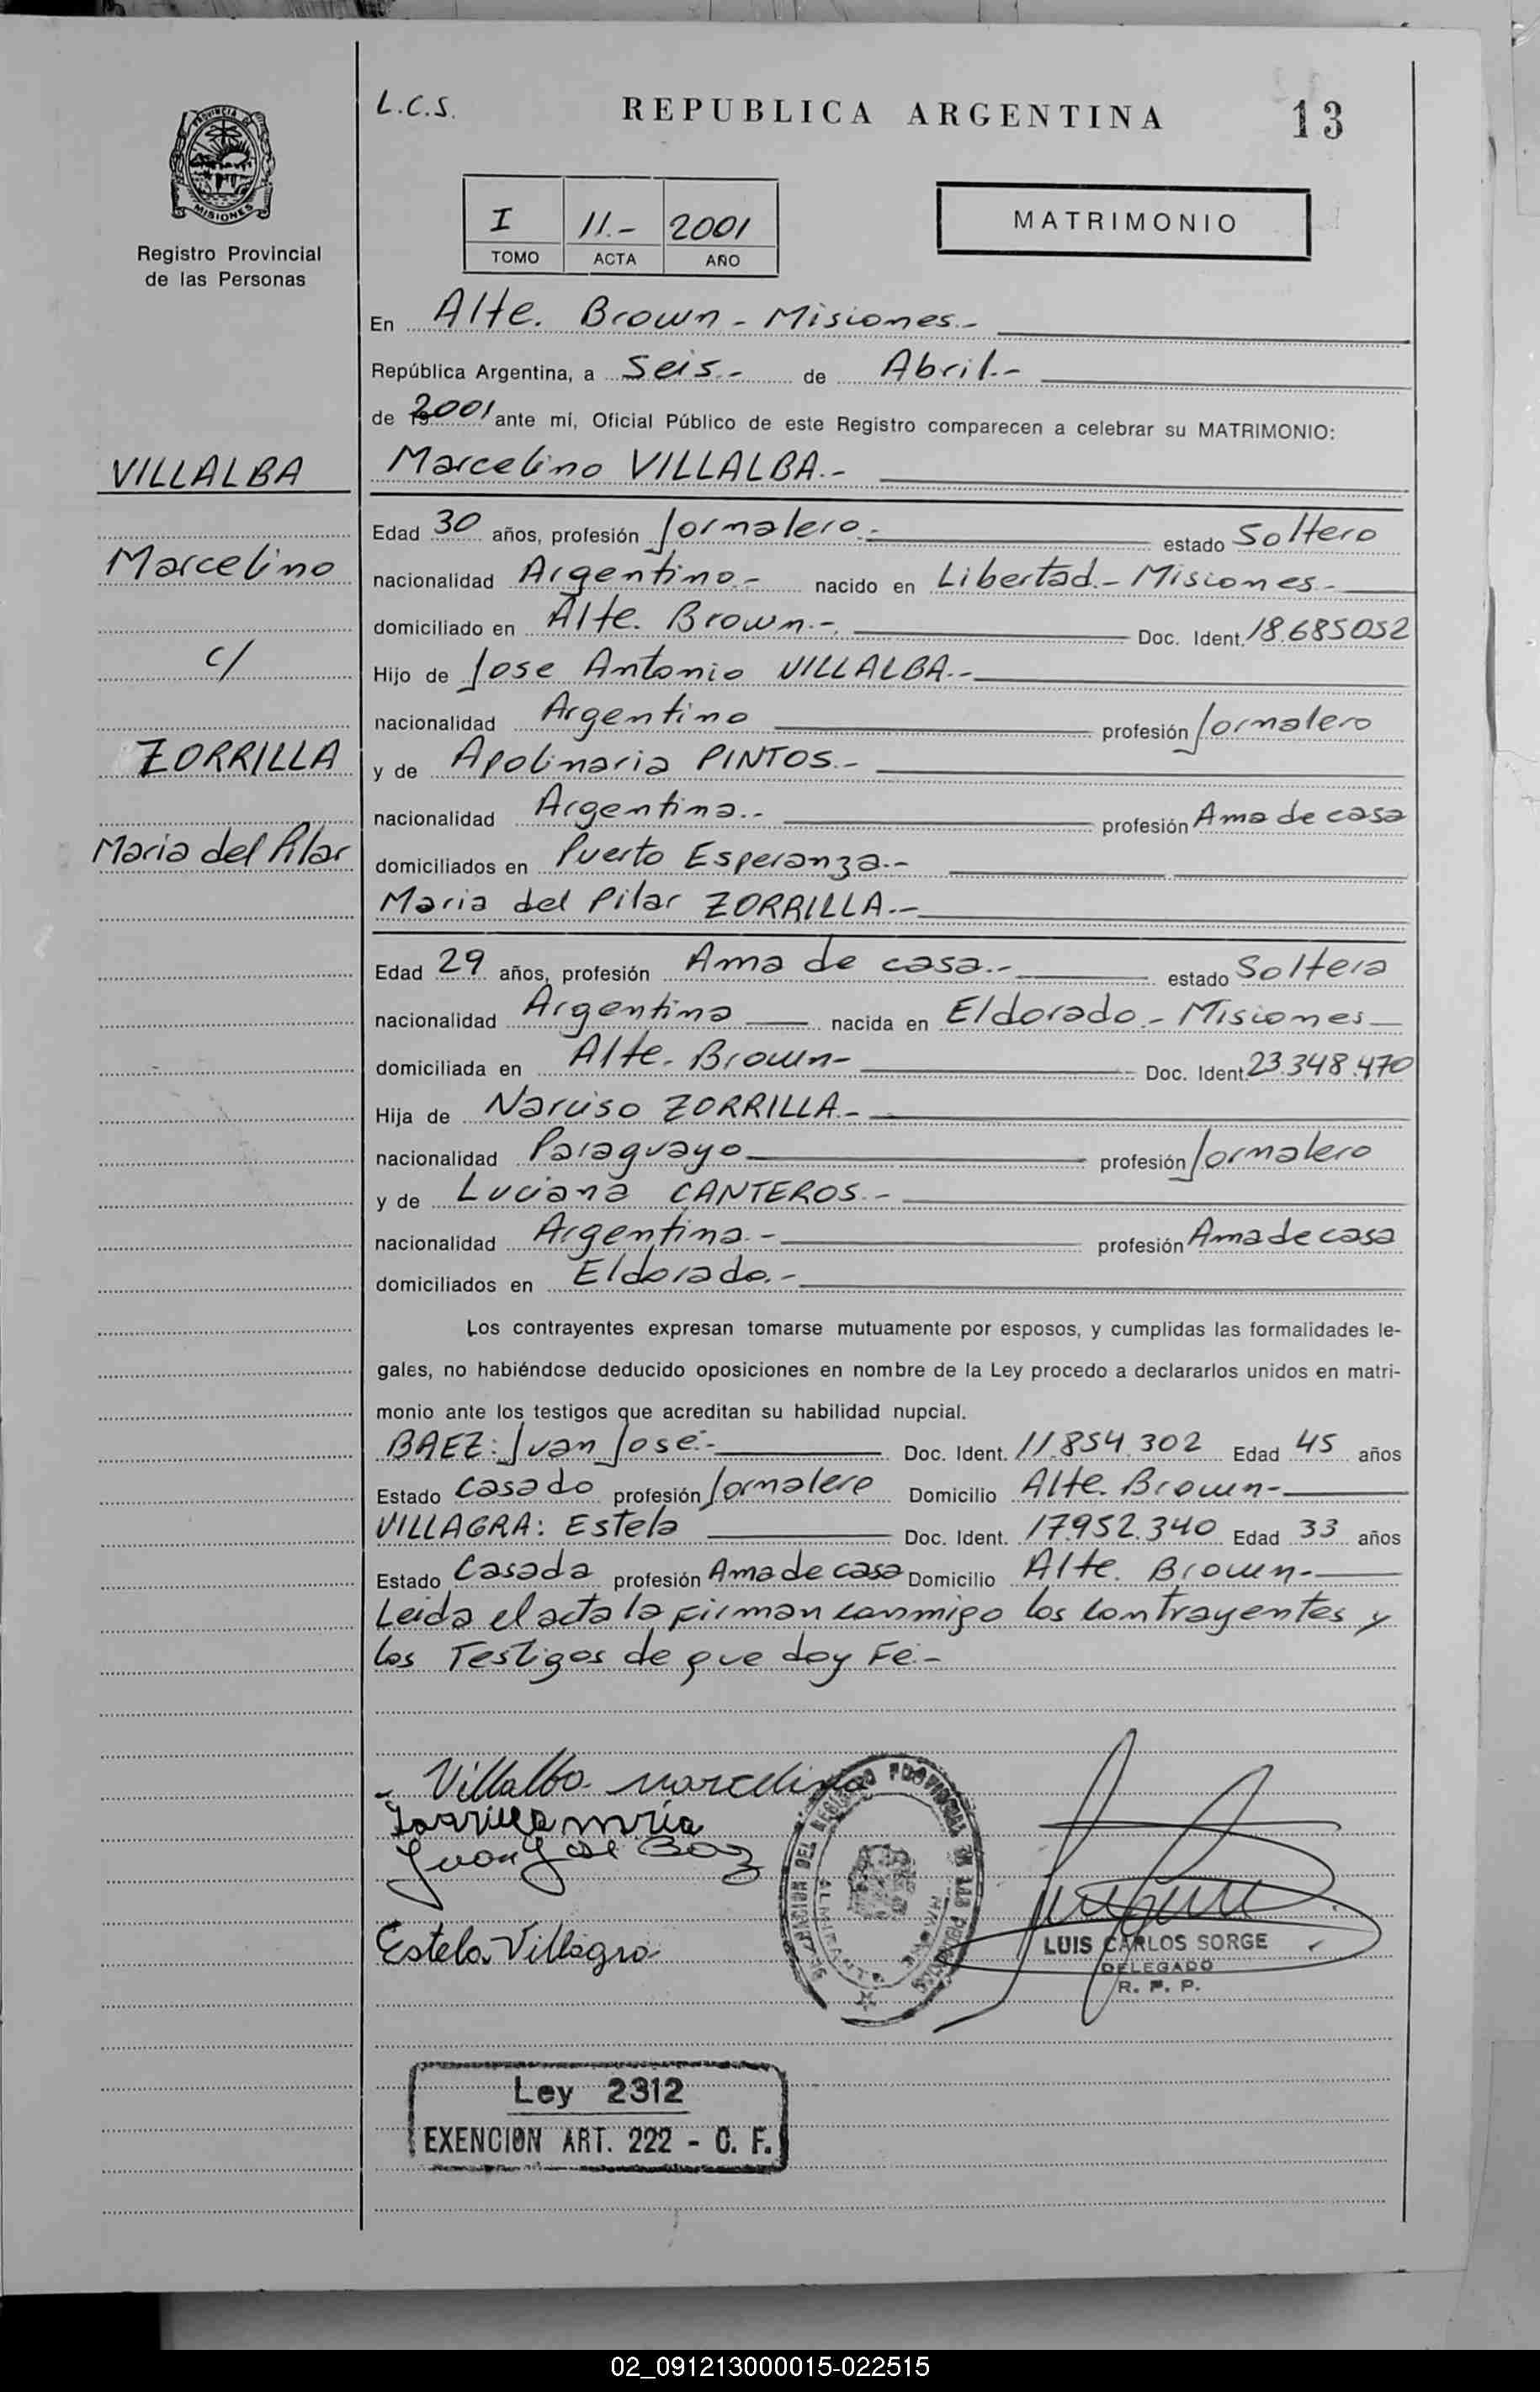 L.C.S.
REPUBLICA ARGENTINA
13
PROVINCIA DE
MISIONES
Registro Provincial
de las Personas
I 11.- 2001
TOMO ACTA AÑO
MATRIMONIO
En Alte. Brown - Misiones.-
República Argentina, a Seis.- de Abril.-
de 2001 ante mí, Oficial Público de este Registro comparecen a celebrar su MATRIMONIO:
VILLALBA
Marcelino
c/
ZORRILLA
Maria del Pilar
Marcelino VILLALBA.-
Edad 30 años, profesión Jornalero.- estado Soltero
nacionalidad Argentino.- nacido en Libertad.- Misiones.-
domiciliado en Alte. Brown.-. Doc. Ident. 18.685052
Hijo de Jose Antonio VILLALBA.-
nacionalidad Argentino profesión Jornalero
y de Apolinaria PINTOS.-
nacionalidad Argentina.- profesión Ama de casa
domiciliados en Puerto Esperanza.-
Maria del Pilar ZORRILLA.-
Edad 29 años, profesión Ama de casa.- estado Soltera
nacionalidad Argentina nacida en Eldorado.- Misiones
domiciliada en Alte. Brown- Doc. Ident. 23.348.470
Hija de Narciso ZORRILLA.-
nacionalidad Paraguayo profesión Jornalero
y de Luciana CANTEROS.-
nacionalidad Argentina.- profesión Ama de casa
domiciliados en Eldorado.-
Los contrayentes expresan tomarse mutuamente por esposos, y cumplidas las formalidades le-
gales, no habiéndose deducido oposiciones en nombre de la Ley procedo a declararlos unidos en matri-
monio ante los testigos que acreditan su habilidad nupcial.
BAEZ: Juan José.- Doc. Ident. 11.854.302 Edad 45 años
Estado Casado profesión Jornalero Domicilio Alte. Brown-
VILLAGRA: Estela Doc. Ident. 17.952.340 Edad 33 años
Estado Casada profesión Ama de casa Domicilio Alte. Brown-
Leida el acta la firman conmigo los contrayentes y
los Testigos de que doy Fe.-
Villalba marcelino
Zorrilla maría
Juan José Baez
Estela Villagra
DEL REGISTRO PROVINCIAL DE LAS PERSONAS
LUIS CARLOS SORGE
DELEGADO
R. P. P.
Ley 2312
EXENCION ART. 222 - C. F.
02_091213000015-022515